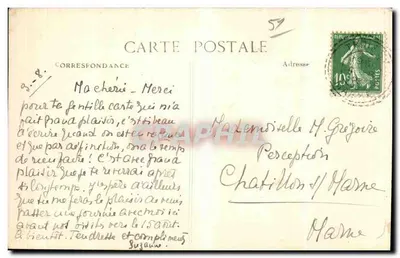 51
CARTE POSTALE
CORRESPONDANCE
Adresse
10c
POSTES
3.-8.
Ma chérie - Merci
pour ta gentille carte qui m'a
fait grand plaisir, c'est si beau
d'écrire quand on est en
et que par définition, on a le temps
de rien faire! C'est avec grand
plaisir que je te reverrai après
si longtemps. J'espère d'ailleurs
que tu me feras le plaisir de venir
passer une journée avec moi ici
avant le 15 Août.
à bientôt. Tendresse et compliments
Suzanne
Mademoiselle M. Grégoire
Perception
Chatillon s/ Marne
Marne